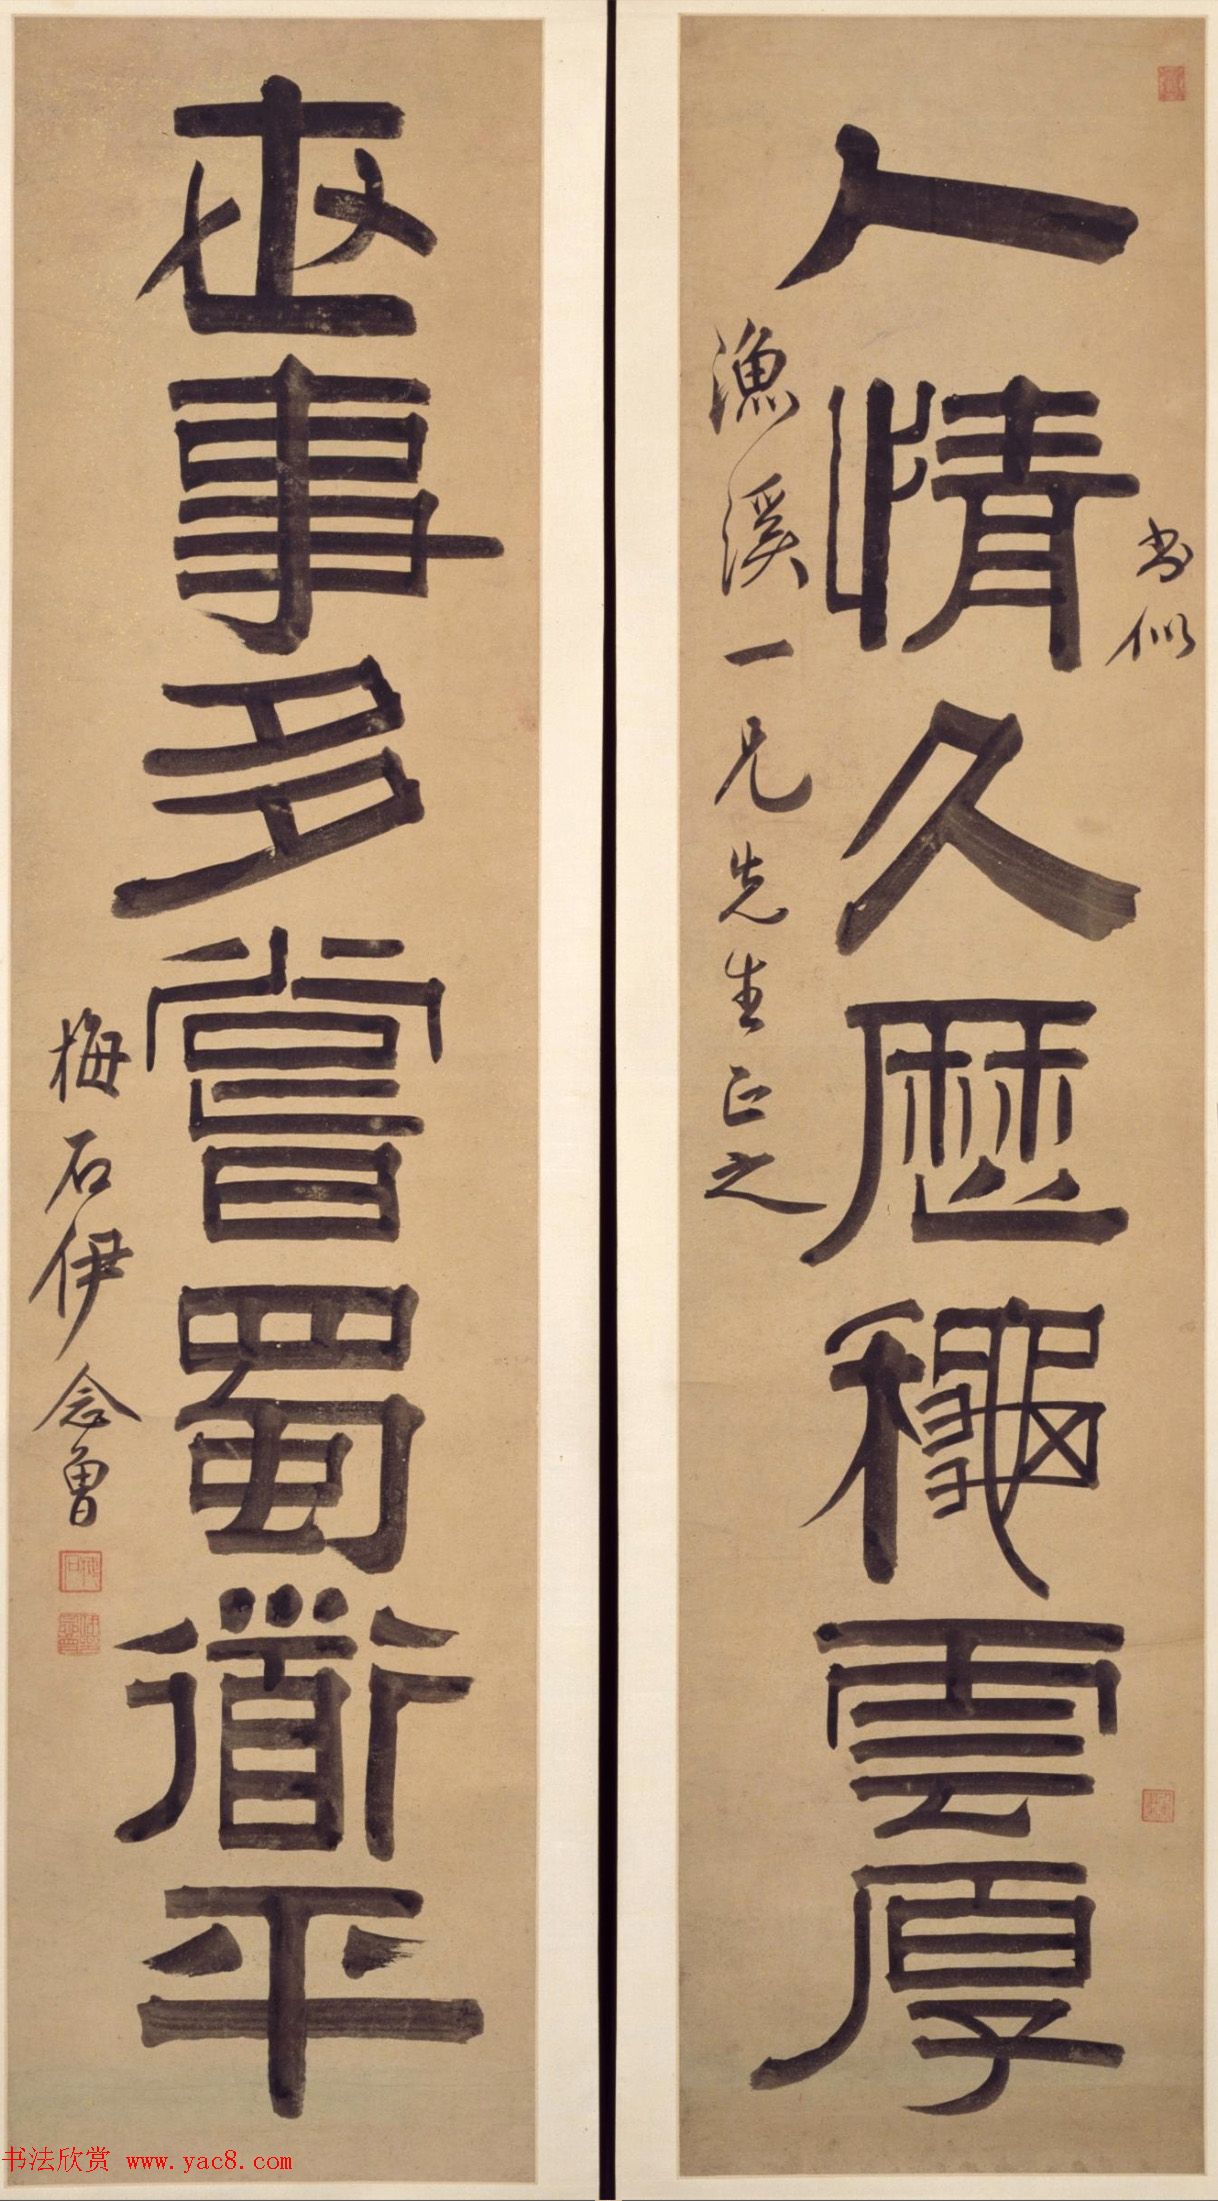 書似
人情久歷龝雲厚
漁溪一兄先生正之
世事多嘗蜀衜平
梅石伊念曾
书法欣赏 www.yac8.com